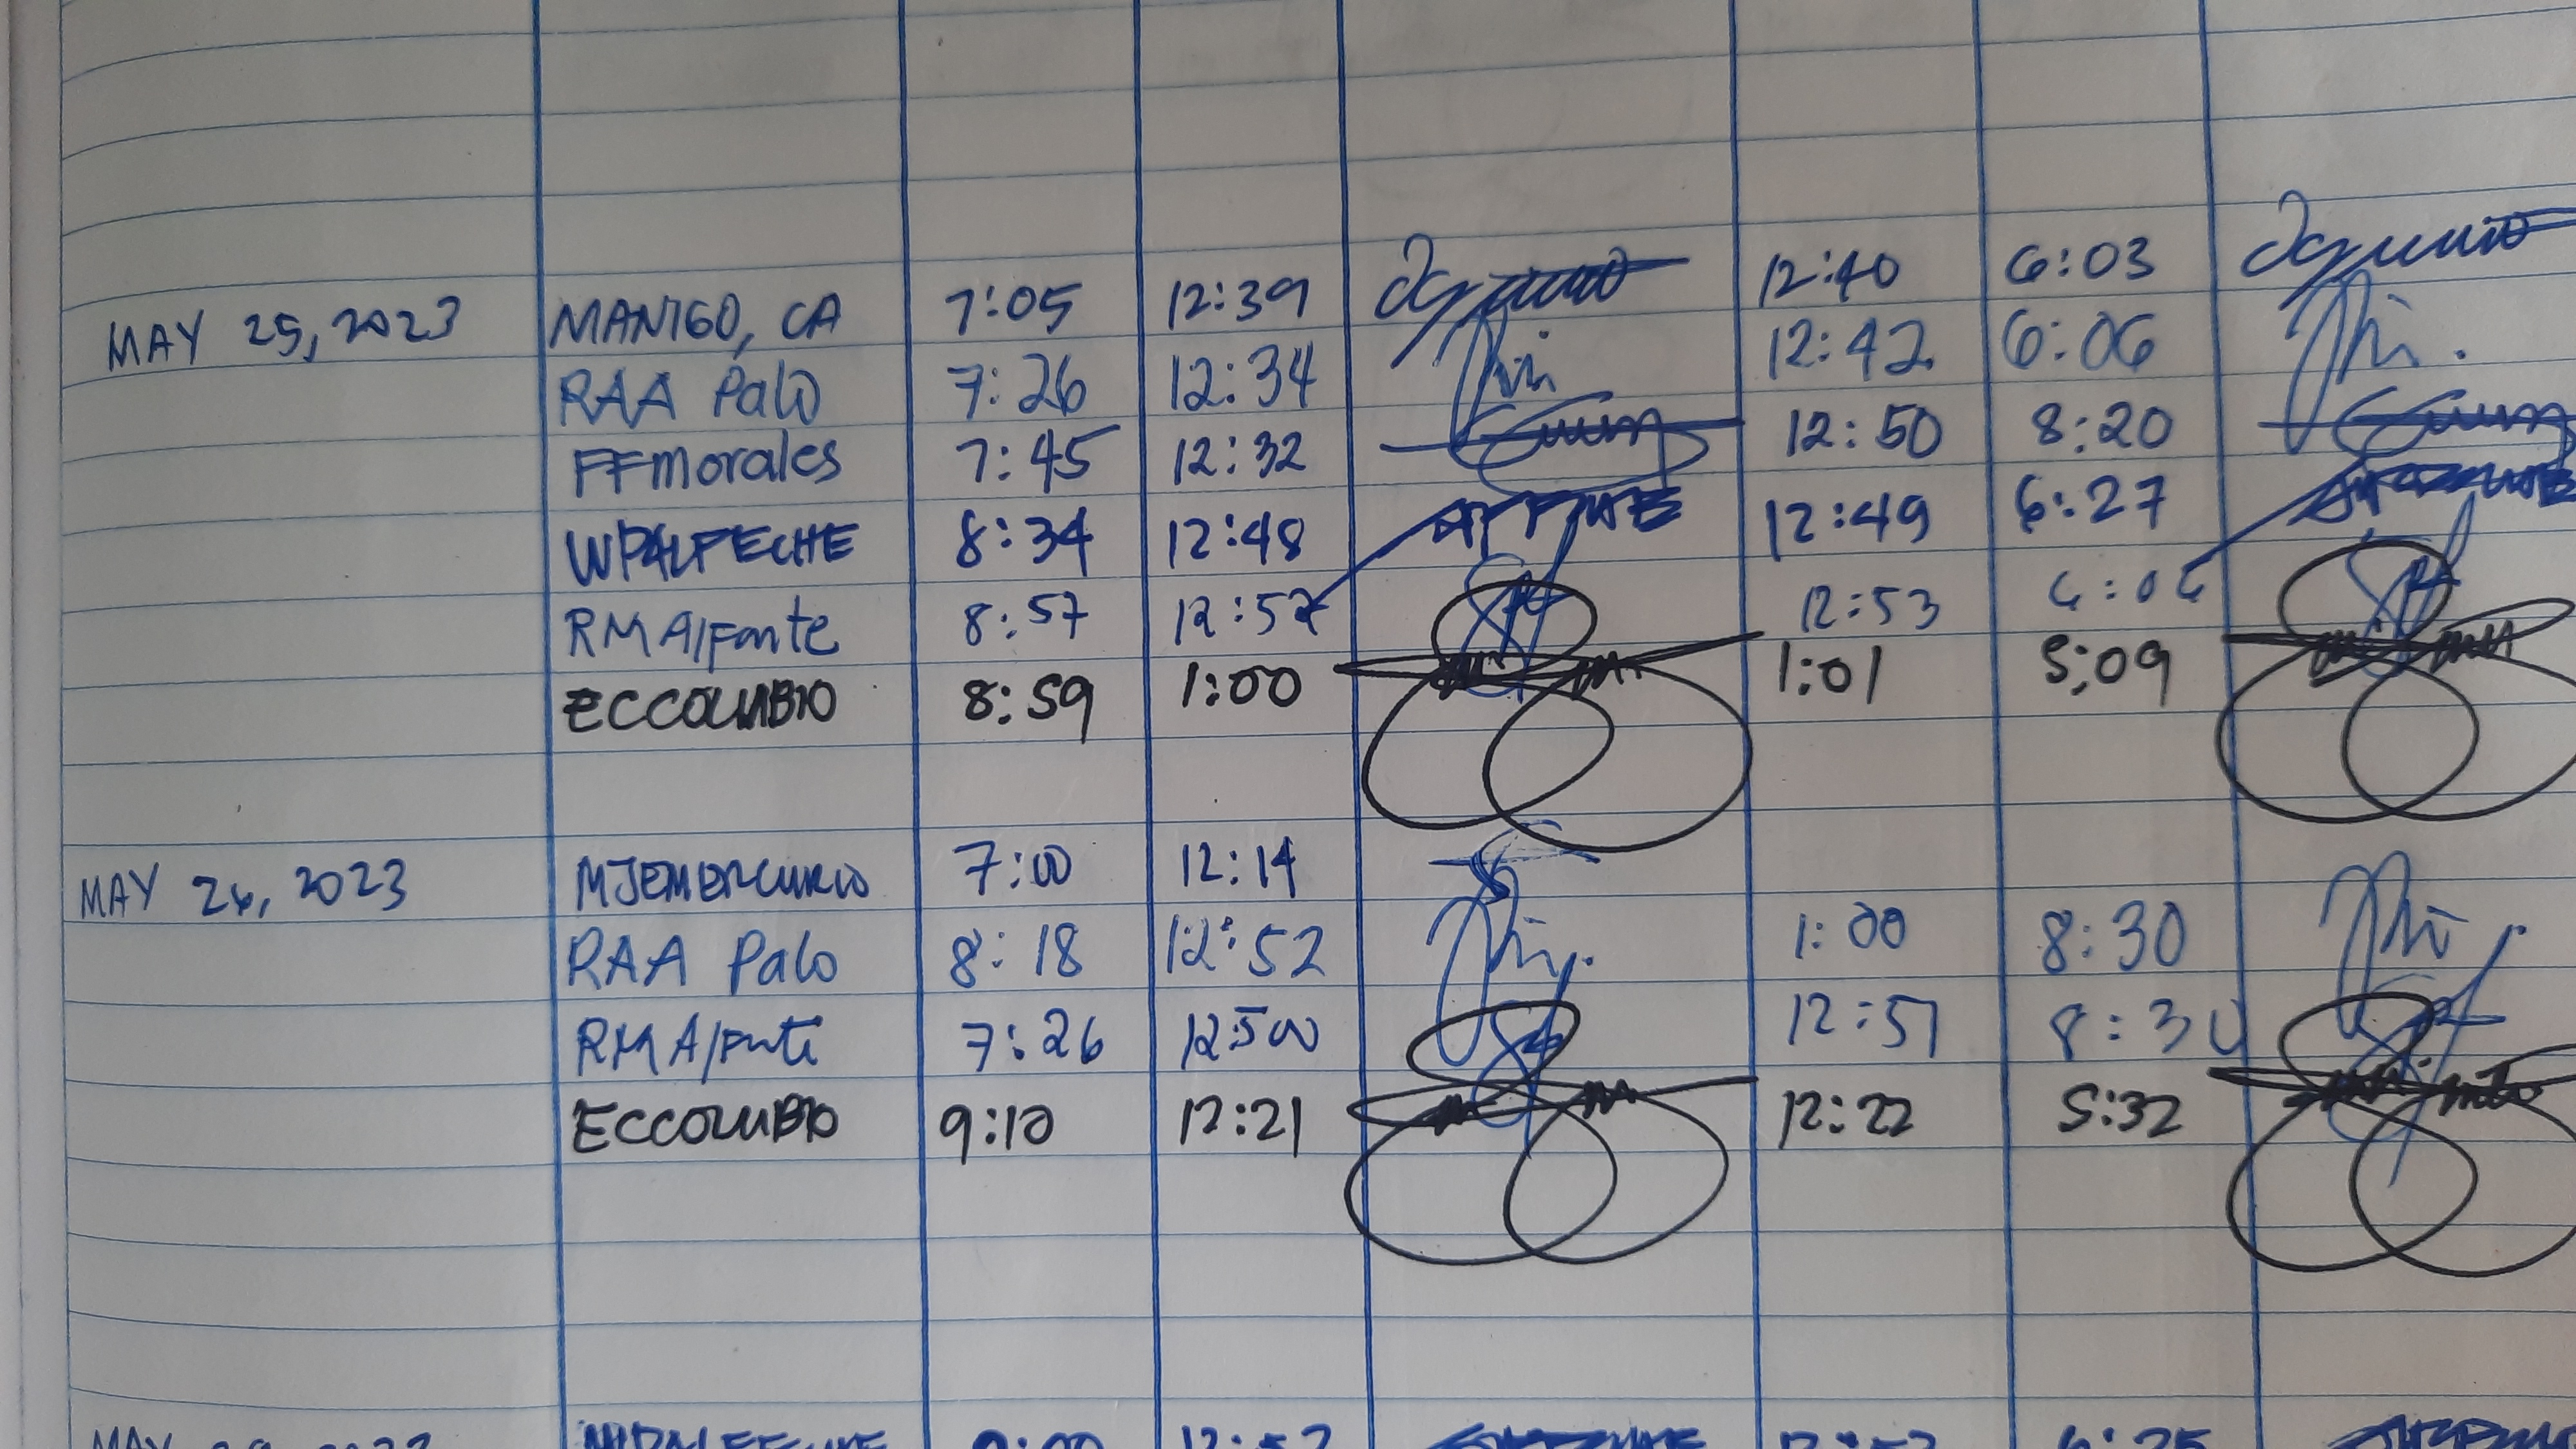 MAY 25, 2023 MANIGO, CA 7:05 12:39 12:40 6:03
RAA Palo 7:26 12:34 12:42 6:06
FFmorales 7:45 12:32 12:50 8:20
WPALFECHE 8:34 12:48 12:49 6:27
RMA/fonte 8:57 12:52 12:53 6:06
ECCOLUMBIO 8:59 1:00 1:01 5:09
MAY 26, 2023 MJEMERCURIO 7:00 12:14
RAA Palo 8:18 12:52 1:00 8:30
RMA/fnte 7:26 12:500 12:51 8:30
ECCOLUMBIO 9:10 12:21 12:22 5:32
MAY